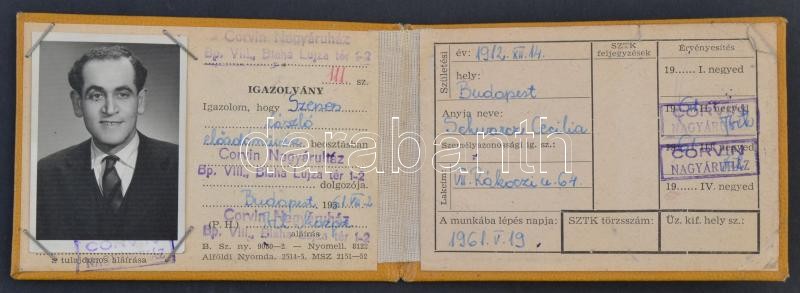 Corvin Nagyáruház
Bp. VIII., Blaha Lujza tér 1-2
111 sz.
IGAZOLVÁNY
Igazolom, hogy Szenes
László
előadóművész beosztásban
Corvin Nagyáruház
Bp. VIII., Blaha Lujza tér 1-2
dolgozója.
Budapest, 1961. VII. 2
(P. H.)
aláírás
Corvin Nagyáruház
Bp. VIII., Blaha Lujza tér 1-2
B. Sz. ny. 9060—2 — Nyomell. 8122
Alföldi Nyomda. 2514-5. MSZ 2151—52
CORVIN
a tulajdonos aláírása
Születési
év: 1912. XII. 14.
hely:
Budapest
Anyja neve:
Schwarcz Cecilia
Személyazonossági ig. sz.:
Lakcím
VII. Rákóczi u. 64.
A munkába lépés napja:
1961. V. 19.
SZTK
feljegyzések
SZTK törzsszám:
Érvényesítés
19...... I. negyed
1961 II. negyed
CORVIN
NAGYÁRUHÁZ
III. negyed
CORVIN
NAGYÁRUHÁZ
19...... IV. negyed
Üz. kif. hely sz.:
darabanth